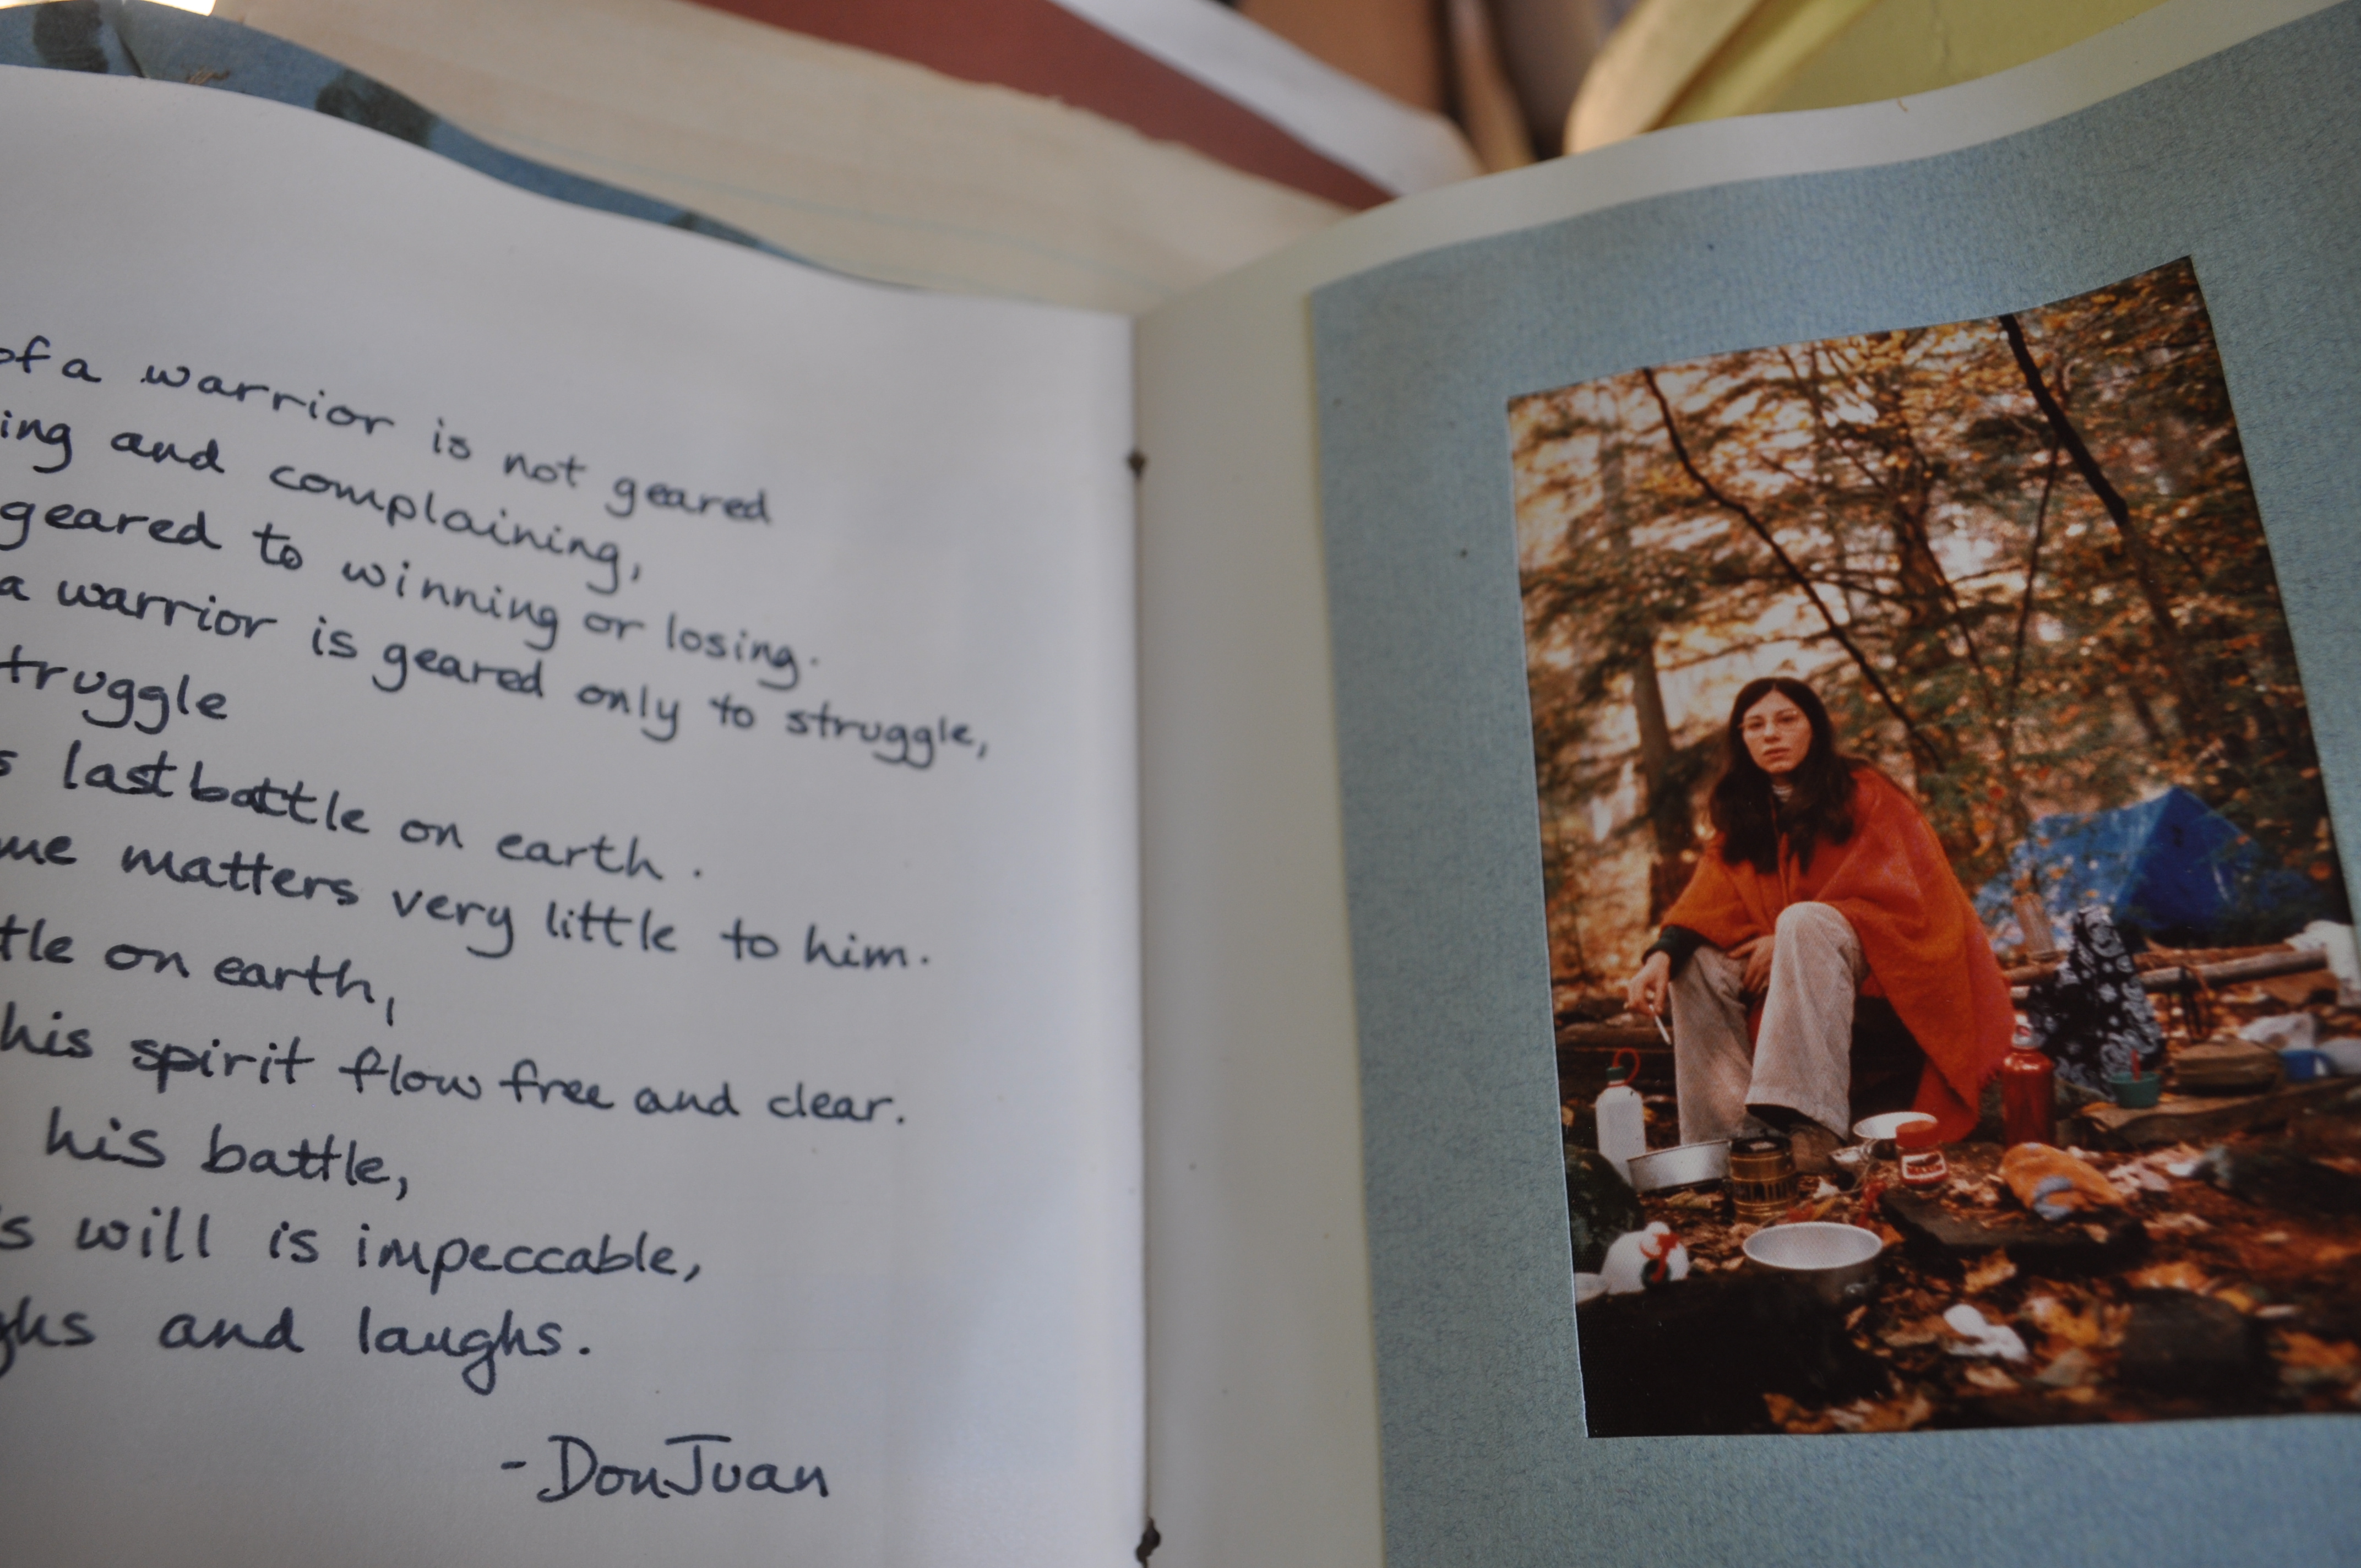 of a warrior is not geared
ing and complaining,
geared to winning or losing.
a warrior is geared only to struggle,
truggle
s last battle on earth.
me matters very little to him.
tle on earth,
his spirit flow free and clear.
his battle,
s will is impeccable,
ghs and laughs.
- Don Juan